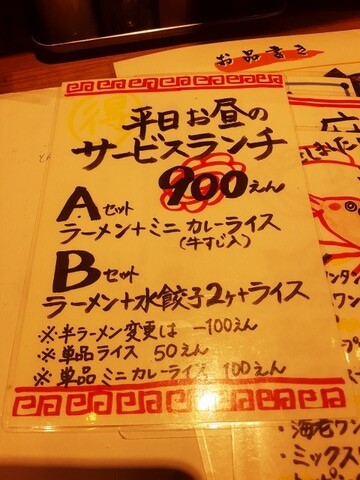 お品書き
得
平日お昼の
サービスランチ
900えん
Aセット
ラーメン+ミニカレーライス
(牛すじ入)
Bセット
ラーメン+水餃子2ヶ+ライス
※半ラーメン変更は -100えん
※単品ライス 50えん
※単品ミニカレーライス 100えん
・ミックス